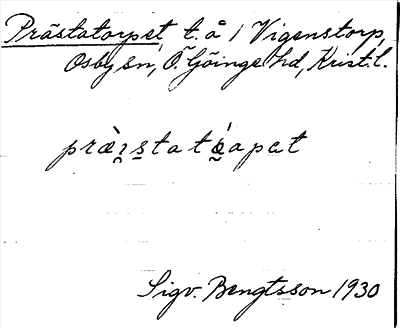 Prästatorpet, t. å 1 Vigenstorp,
Osby sn, Ö. Göinge hd, Krist. l.
præ̀ı̯s̱tatǿ̱apat
Sigv. Bengtsson 1930